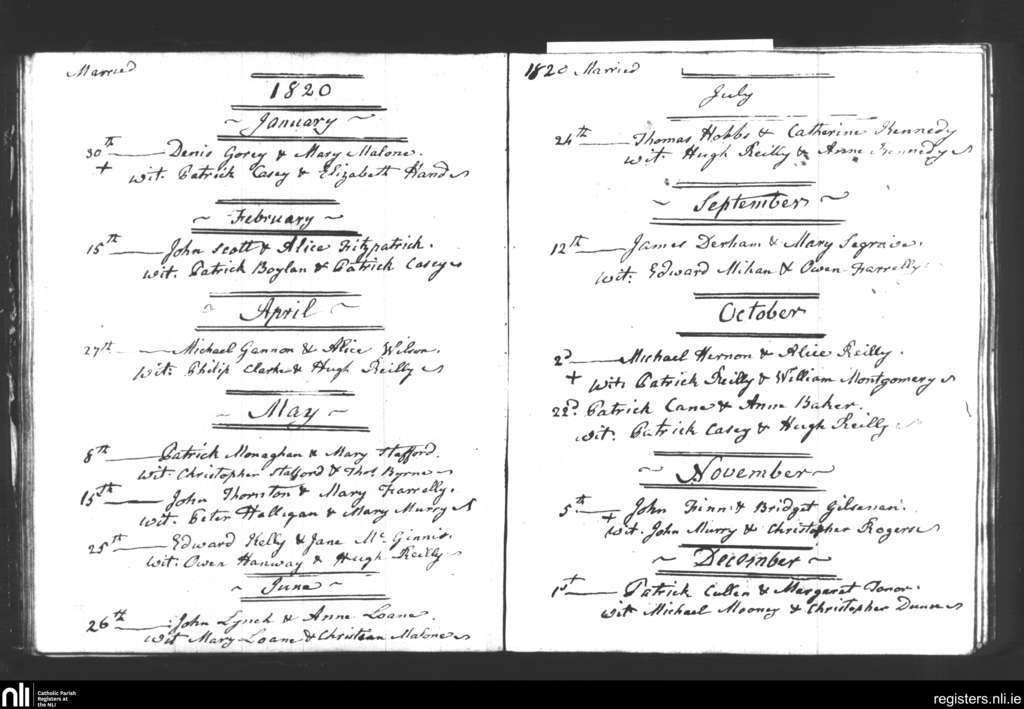 Married
1820
~ January ~
30th Denis Gorey & Mary Malone.
+ wit: Patrick Casey & Elizabeth Hands
~ February ~
15th John Scott & Alice Fitzpatrick.
wit: Patrick Boylan & Patrick Casey
~ April ~
27th Michael Gannon & Alice Wilson.
Wit: Philip Clarke & Hugh Reilly
~ May ~
8th Patrick Monaghan & Mary Stafford.
wit: Christopher Stafford & Thos. Byrne
15th John Thornton & Mary Farrelly.
wit: Peter Halligan & Mary Murry
25th Edward Kelly & Jane Mc Ginnis.
wit: Owen Hanway & Hugh Reilly
~ June ~
26th John Lynch & Anne Loane.
wit Mary Loane & Christian Malone
1820 Married
July
24th Thomas Hobbs & Catherine Kennedy
wit: Hugh Reilly & Anne Kennedy
~ September ~
12th James Derham & Mary Segrave.
wit: Edward Mihan & Owen Farrelly
October
2d Michael Hernon & Alice Reilly.
+ wit: Patrick Reilly & William Montgomery
22d. Patrick Cane & Anne Baker.
wit: Patrick Casey & Hugh Reilly
~ November ~
5th John Finn & Bridget Gilsenan.
+ wit. John Murry & Christopher Rogers
~ December ~
1st Patrick Cullen & Margaret Conor.
wit Michael Mooney & Christopher Dunne
nli
Catholic Parish
Registers at
the NLI
registers.nli.ie